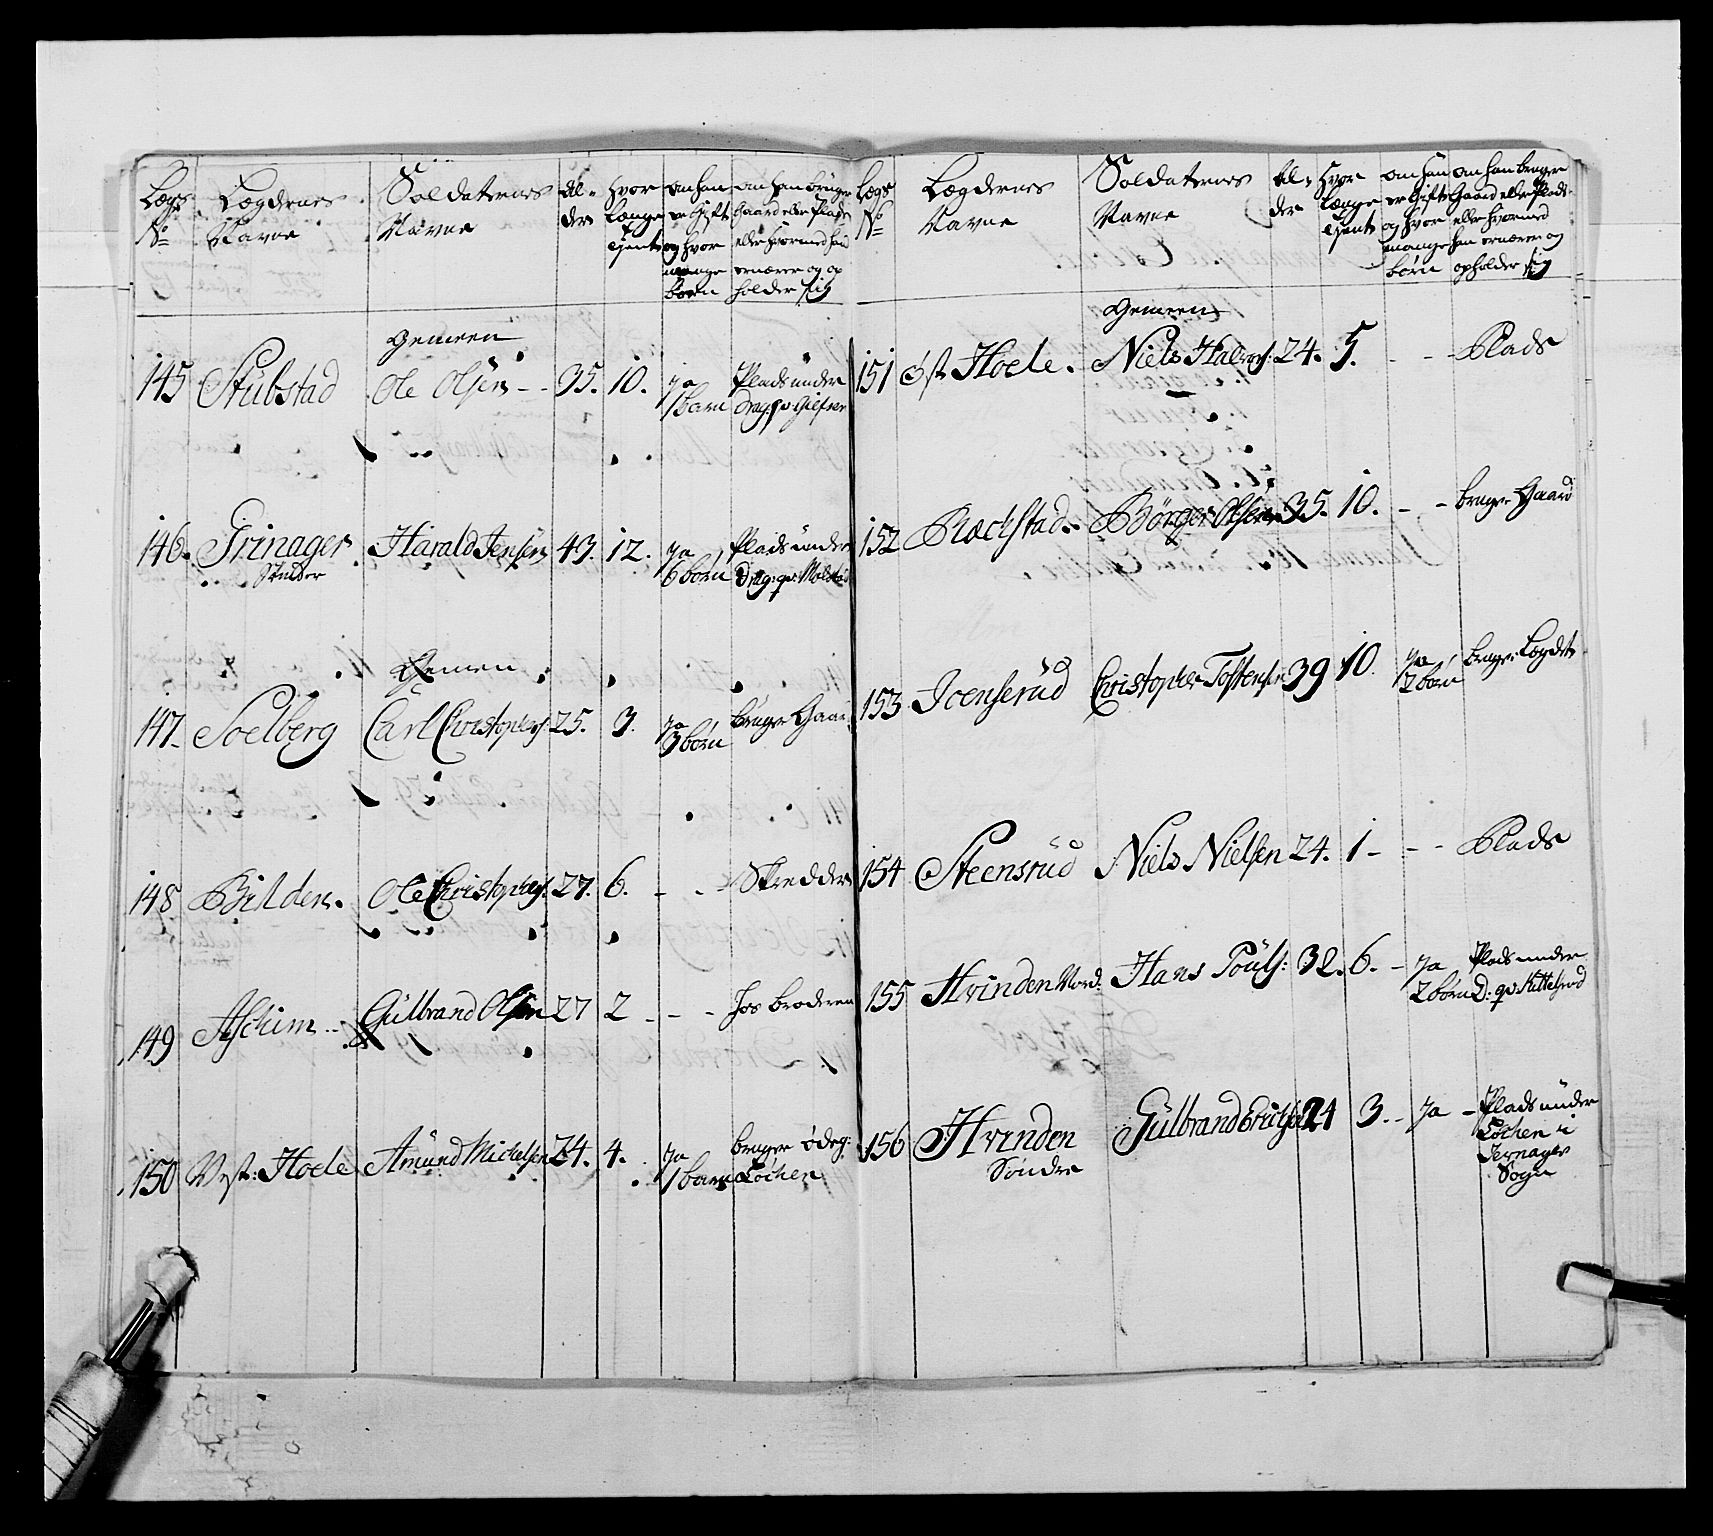 Lægs No
Lægdernes Navne
Soldaternes Navne
Al- der
Hvor længe tjent
om han er Gift og hvor mange børn
om han bruger Gaard eller Plads eller hvormed han ernærer og op holder sig
Gemeen
145 Stubstad Ole Olsen - - 35. 10. ja 1 barn Plads under
146. Grinager Harald Jensen 43. 12. ja 6 børn Plads under
Gemeen
147. Soelberg Carl Christophers: 25. 3. ja 3 børn bruger Gaar
148 Bilden. Ole Christophers: 27. 6. - - Skredder
149 Aschim - - Gulbrand Olsen 27 2 - - - hos broderen
150 Vest: Hoele Amund Michelsen 24. 4. ja 1 barn bruger ødeg: Løchen
Lægs No
Lægdernes Navne
Soldaternes Navne
Al- der
Hvor længe tjent
om han er Gift og hvor mange børn
om han bruger Gaard eller Plads eller hvormed han ernærer og opholder sig
Gemeen
151 Øst Hoele. Niels Halvors: 24. 5. - - - Plads
152 Ræchstad. Börger Olsen 35. 10. - - bruger Gaard
153 Joenserud Christopher Tostensen 39 10. ja 2 børn bruger Legdet
154 Steensrud Niels Nielsen 24. 1 - - - Plads
155 Hvinden Nord: Hans Pouls: 32. 6. - ja 2 børn Plads under
156 Hvinden Søndre Gulbrand Erichsen 24 3. - ja - Plads under
Løchen i
Jernager
Sogn